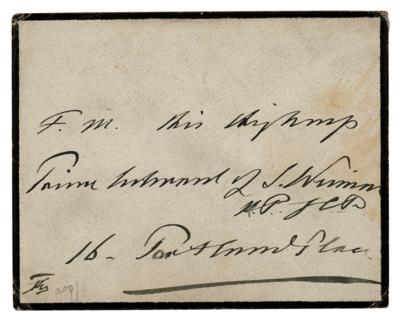 F. M. His Highness
Prince Edward of S. Weimar
K.P. G.C.B.
16- Portland Place